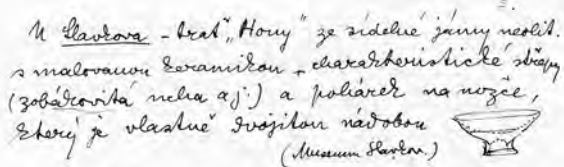 U Slavkova - trať "Hony" ze sídelné jámy neolit.
s malovanou keramikou - charakteristické střepy
(zobákovitá ucha aj.) a pohárek na nožce,
který je vlastně dvojitou nádobou
(Museum Slavkov.)